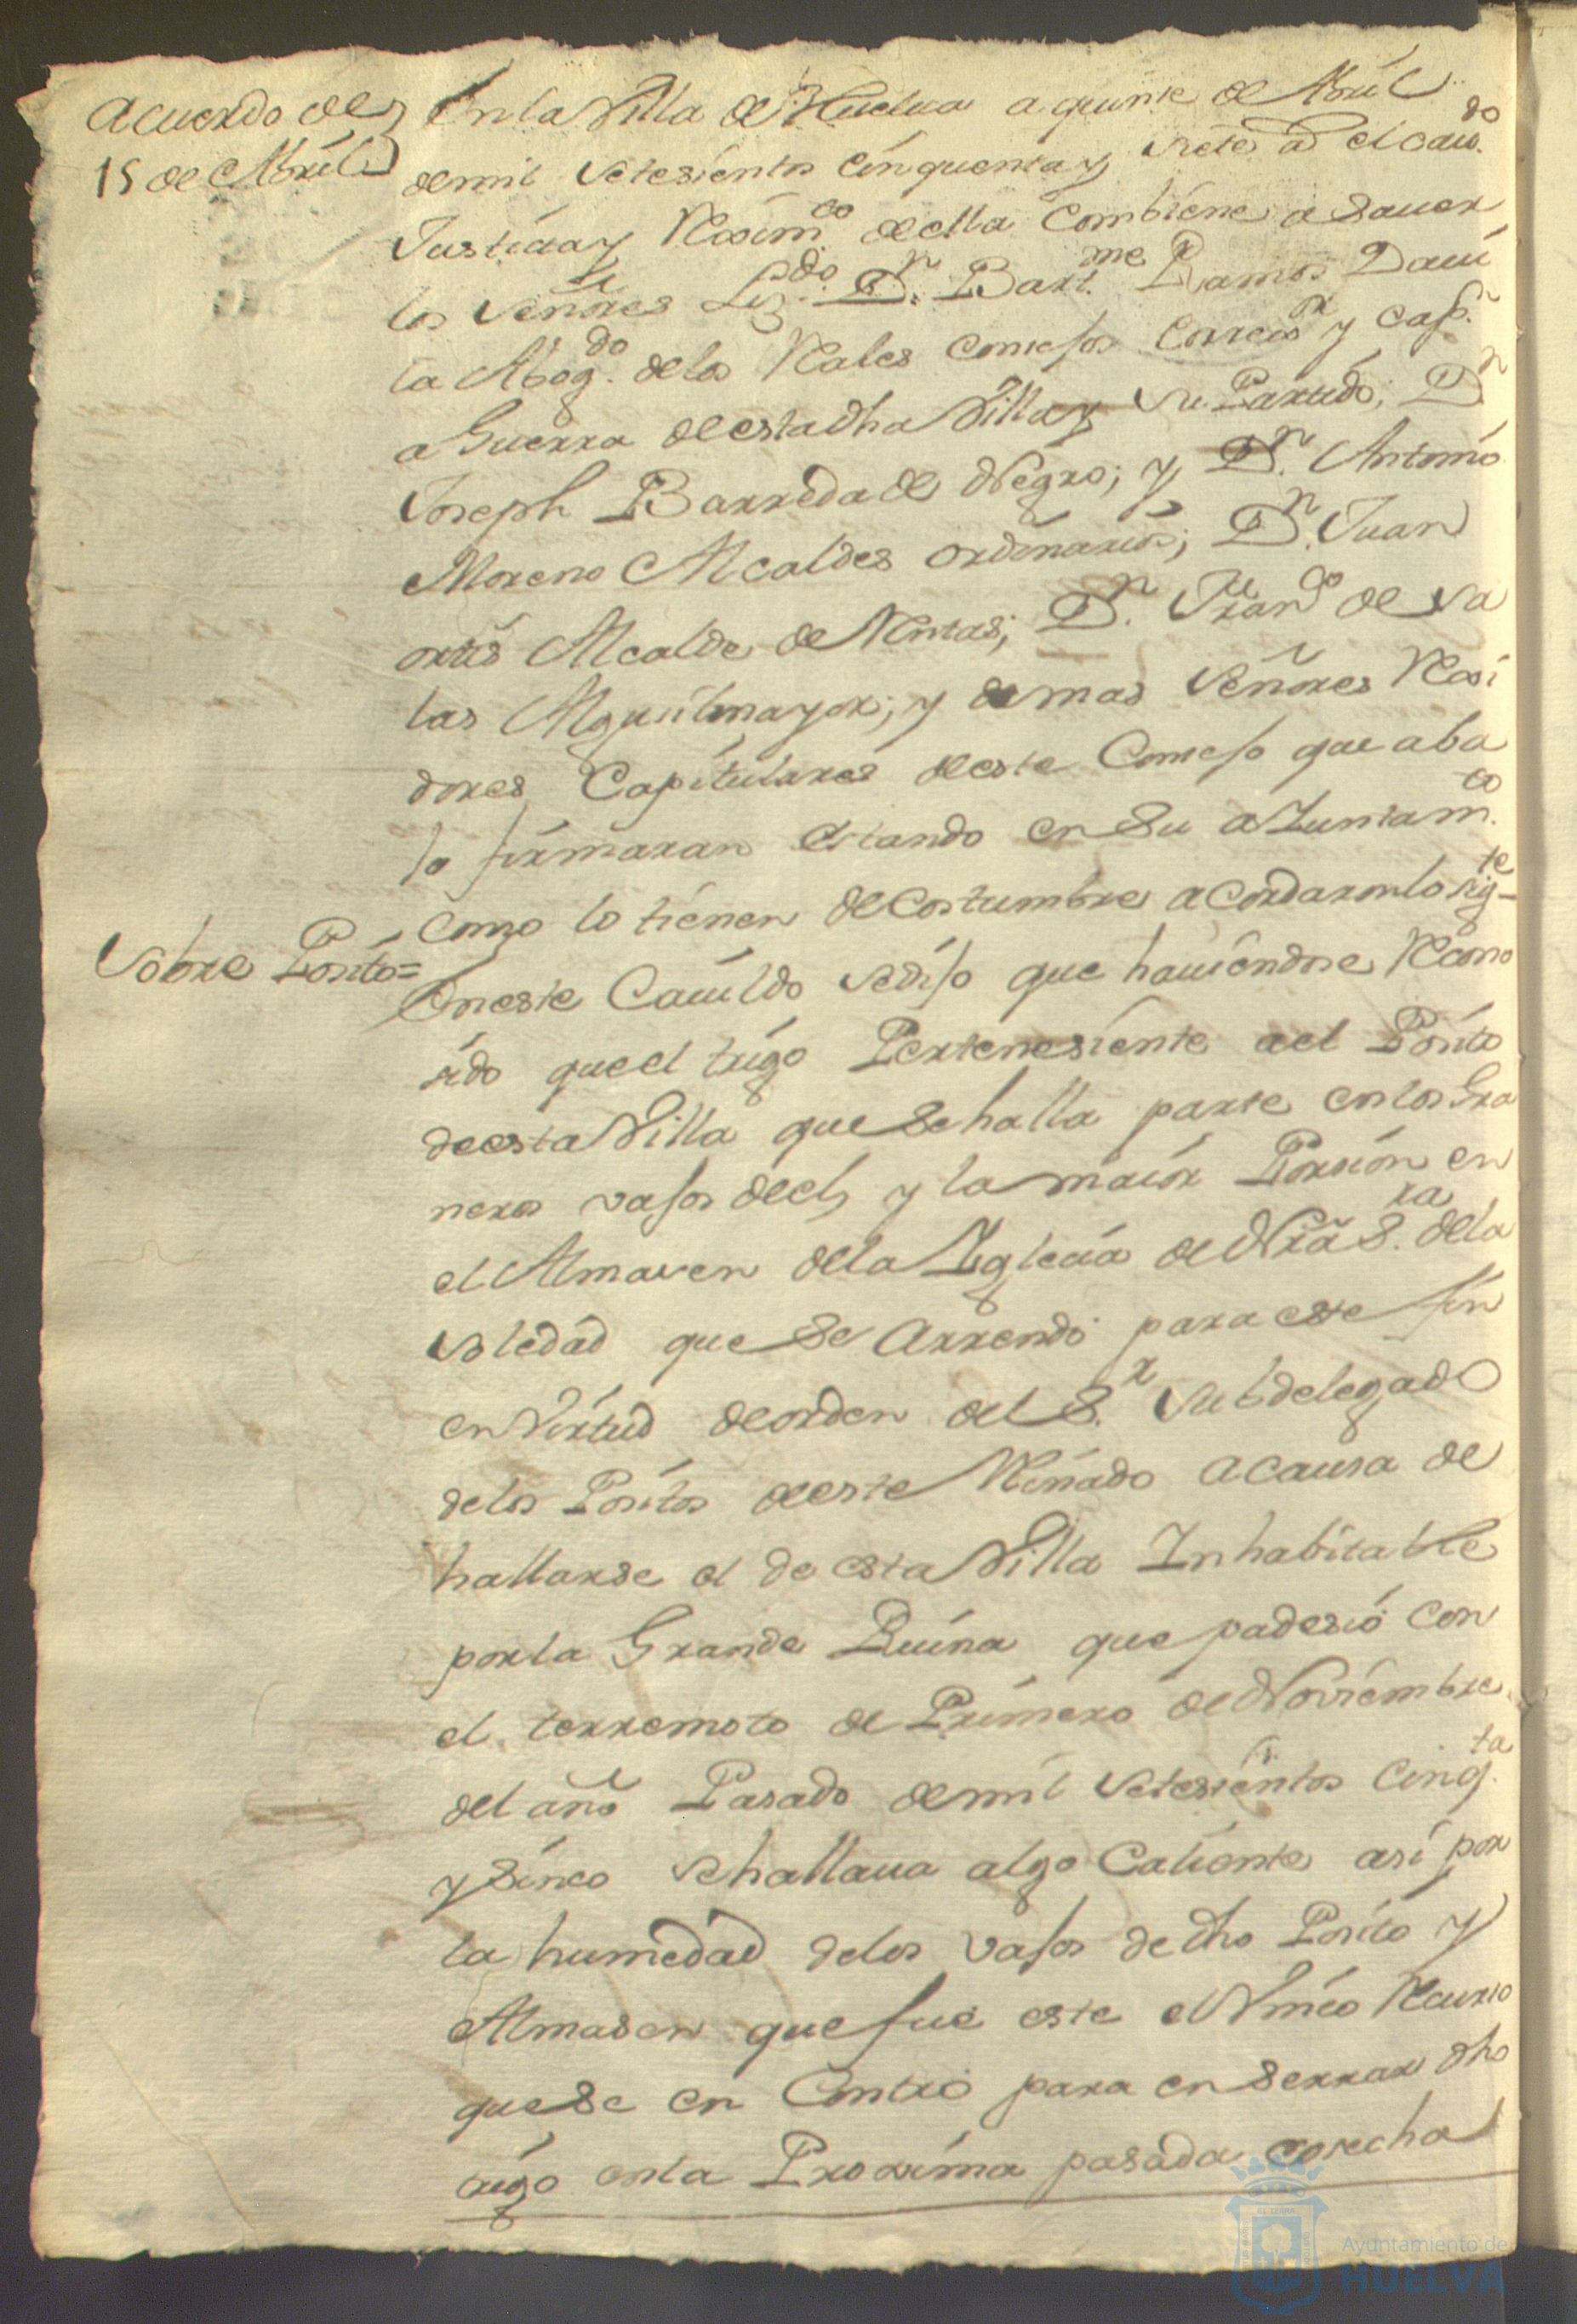 Acuerdo de
15 de Abril
En la Villa de Huelva a quinse de Abril
de mil setesientos cinquenta y siete as el cavdo.
Justicia y Reximto. de ella combiene a saver
los señores Lizdo. Dn. Bartme. Ramos Davi
la Abogdo. de los Rales Consejos Correxor y capn.
a Guerra de esta dha Villa y su Partido; Dn
Joseph Barreda de Negro; y Dn. Antonio
Moreno Alcaldes ordinarios; Dn. Juan
ortis Alcalde de Rentas; Dn. Franco de Sa
las Alguilmayor; y demas señores Rexi
dores Capitulares de este Consejo que aba
jo firmaran estando en su aiuntamto.
como lo tienen de costumbre acordaron lo sigte
Sobre Posito=
En este Cavildo se dijo que haviendose Recono
sido que el trigo Pertenesiente ael Posito
de esta Villa que se halla parte en los Gra
neros vasos de el, y la maior Porsion en
el Almasen de la Yglecia de Nra Sra. de la
Soledad que se Arrendó para este fin
en Virtud de orden del Sr. Subdelegado
de los Positos de este Reinado a causa de
hallarse el de esta Villa Inhabitable
por la Grande Ruina que padesió con
el terremoto de Primero de Noviembre
del año Pasado de mil setesientos Cinqta.
y sinco se hallava algo Caliente asi por
la humedad de los vasos de dho Posito y
Almasen que fue este el Vnico Recurso
que se en Contró para en serrar dho
trigo en la Proxima pasada cosecha
Ayuntamiento de
HUELVA